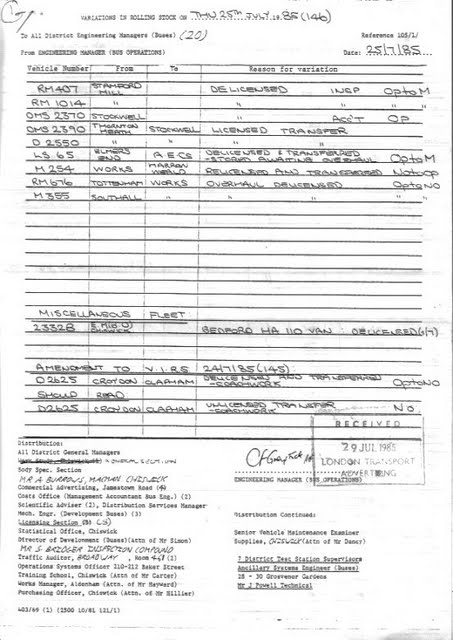 VARIATIONS IN ROLLING STOCK ON THU 25TH JULY 1985 (146)
To All District Engineering Managers (Buses) (20) Reference 105/1/
From ENGINEERING MANAGER (BUS OPERATIONS) Date: 25/7/85.
Vehicle Number From To Reason for variation
RM 407 STAMFORD HILL DELICENSED INSP Op to M
RM 1014 " " " "
OMS 2370 STOCKWELL " ACC'T OP
OMS 2390 THORNTON HEATH STOCKWELL LICENSED TRANSFER
D 2550 " " " "
LS 65 ELMERS END A.E.C.S DELICENSED & TRANSFERRED - STORED AWAITING OVERHAUL Op to M
M 254 WORKS HARROW WEALD RELICENSED AND TRANSFERRED N to Op
RM 676 TOTTENHAM WORKS OVERHAUL DELICENSED Op to NO
M 355 SOUTHALL " " " "
MISCELLANEOUS FLEET
2332B CHISWICK BEDFORD HA 110 VAN : DELICENSED
AMENDMENT TO V.I.R.S 24/7/85 (145)
D2625 CROYDON CLAPHAM DELICENSED AND TRANSFERRED - COACHWORK Op to NO
SHOULD READ
D2625 CROYDON CLAPHAM UNLICENSED TRANSFER - COACHWORK No.
RECEIVED
29 JUL 1985
LONDON TRANSPORT
ADVERTISING
ENGINEERING MANAGER (BUS OPERATIONS)
Distribution:
All District General Managers
Body Spec. Section
MR A BURROWS, CHISWICK
Commercial Advertising, Jamestown Road
Costs Office (Management Accountant Bus Eng.) (2)
Scientific Adviser (2), Distribution Services Manager
Mech. Engr. (Development Buses) (3)
Licensing Section
Statistical Office, Chiswick
Director of Development (Buses)(Attn of Mr Simon)
MR S. BRIDGER INSPECTION COMPOUND
Traffic Auditor, BROADWAY, Room
Operations Systems Officer 210-212 Baker Street
Training School, Chiswick (Attn of Mr Carter)
Works Manager, Aldenham (Attn. of Mr Hayward)
Purchasing Officer, Chiswick (Attn of Mr Hillier)
Distribution Continued:
Senior Vehicle Maintenance Examiner
Supplies, CHISWICK (Attn of Mr Dancy)
7 District Test Station Supervisors
Ancillary Systems Engineer (Buses)
28 - 30 Grosvenor Gardens
Mr J Powell Technical
403/69 (1) (2500 10/81 121/1)